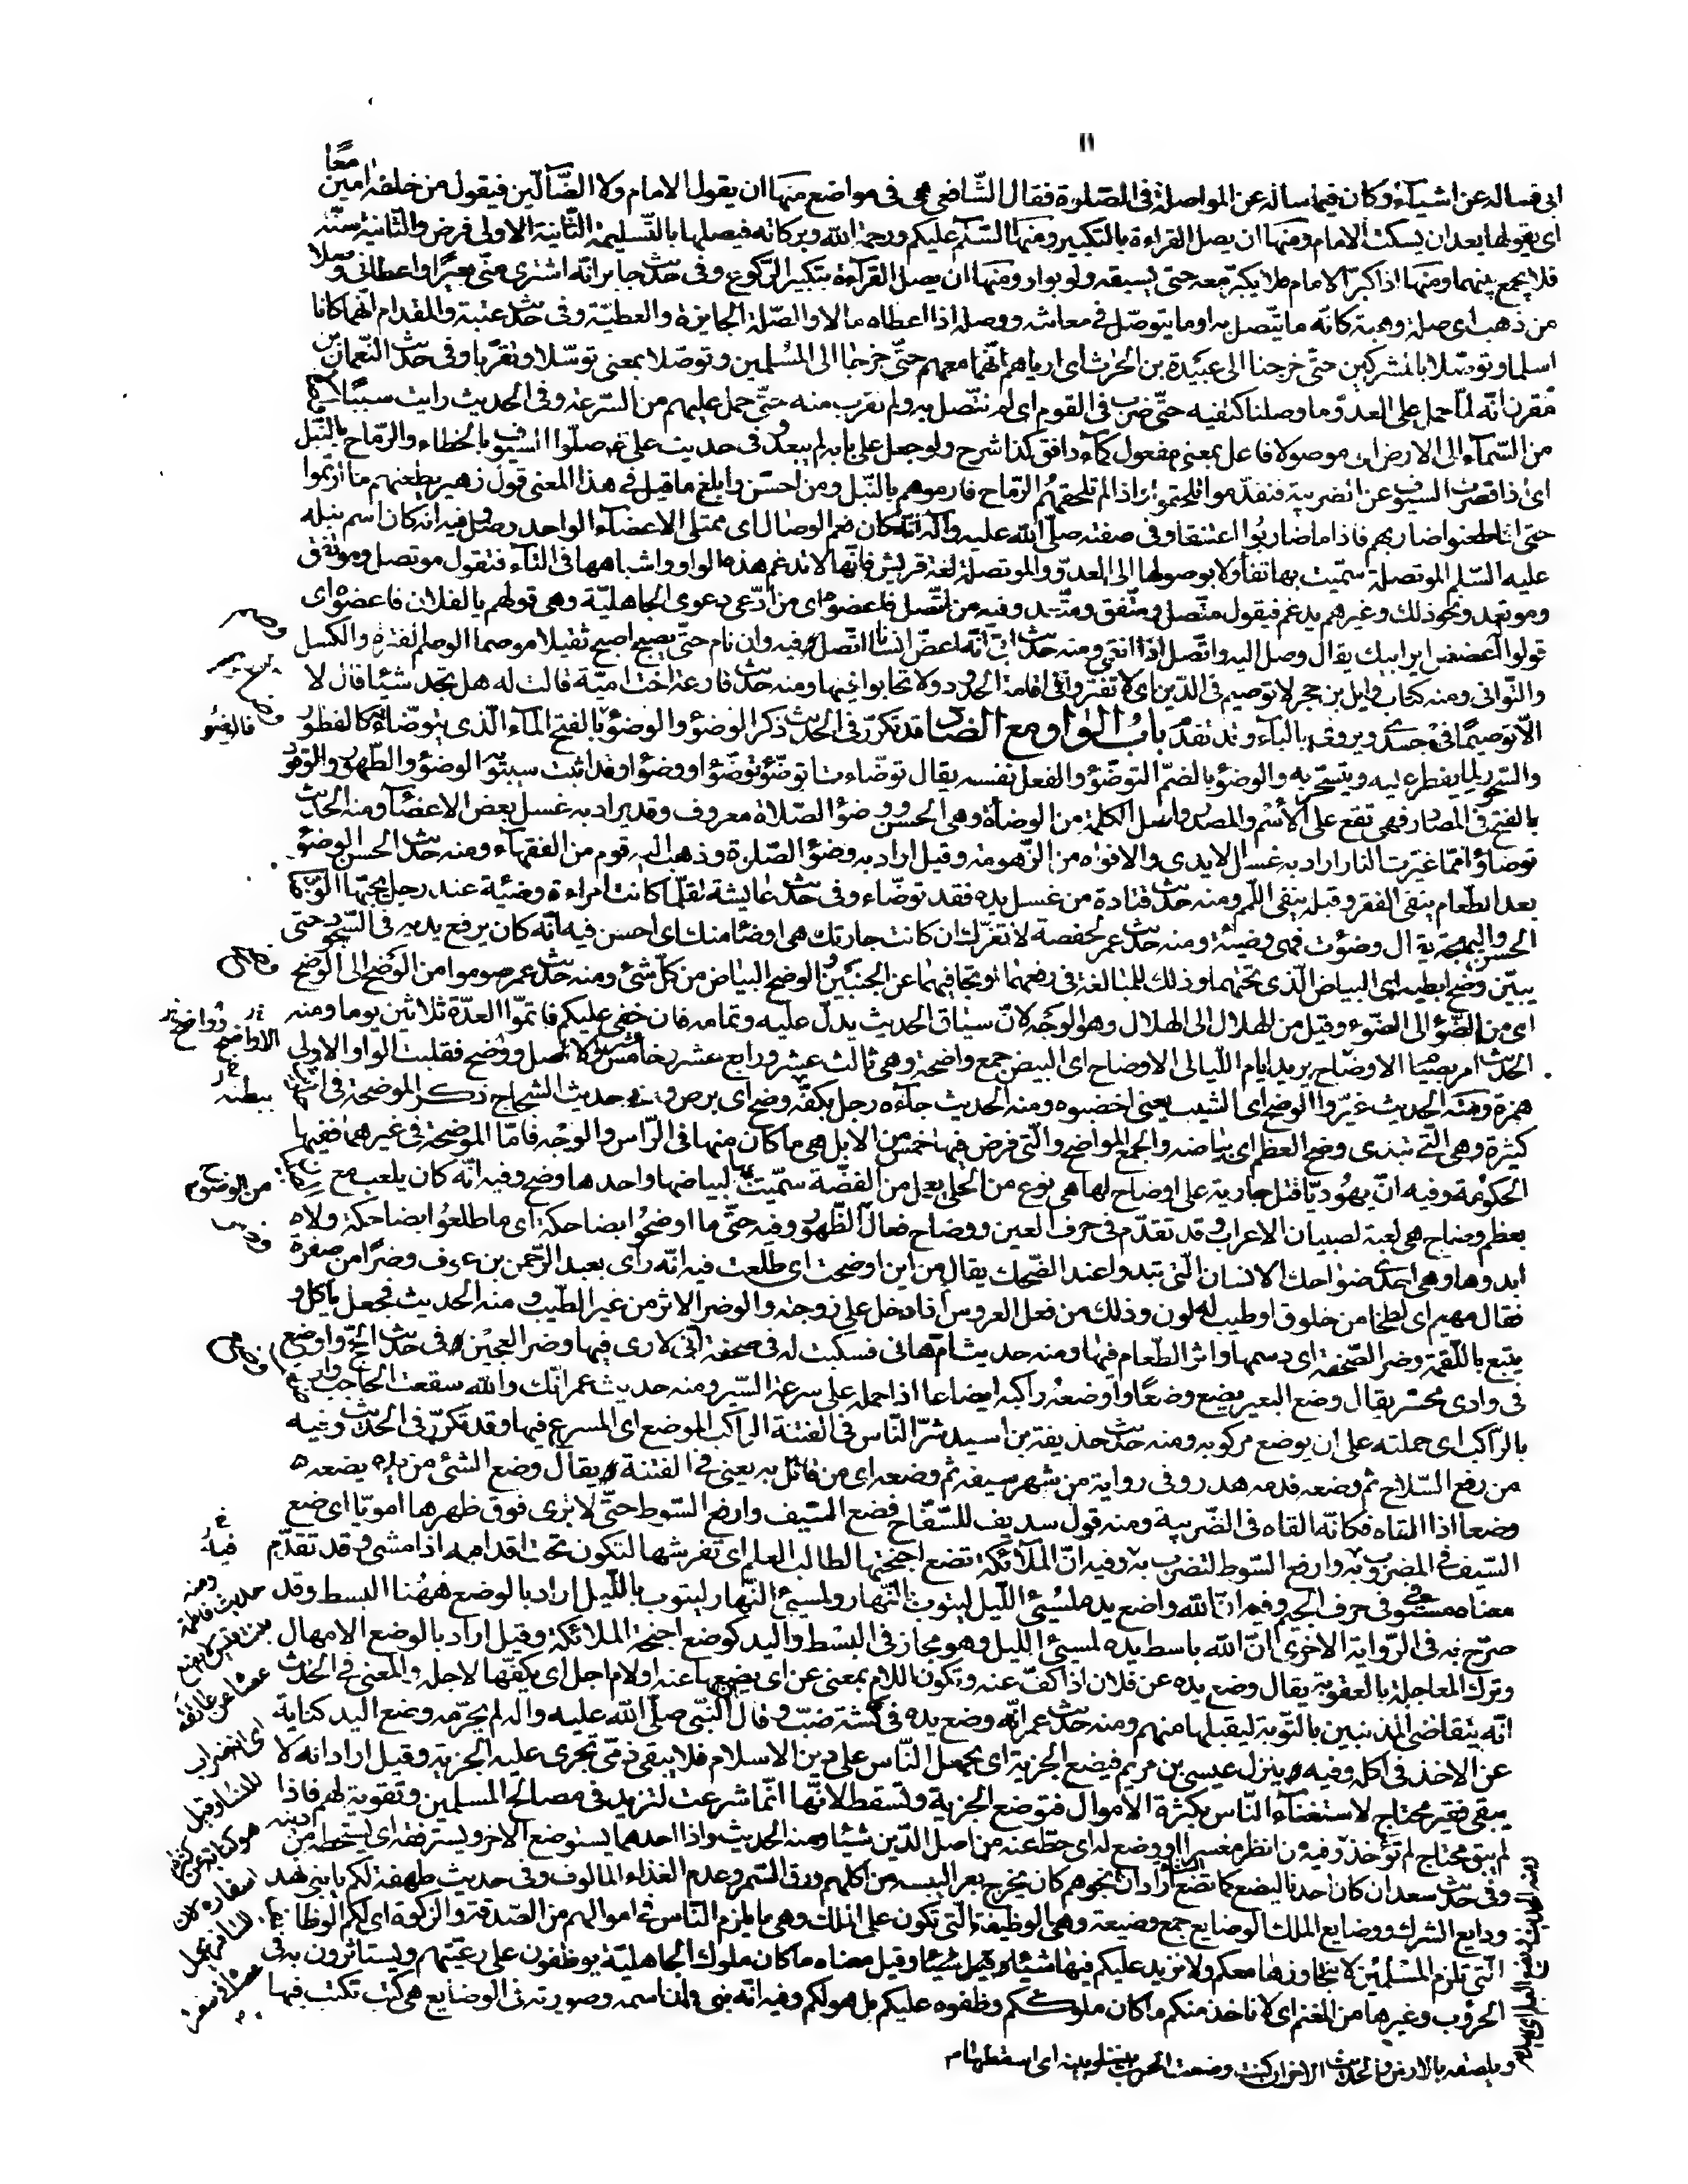 ١١
معًا
ابى فساله عن اشيآء وكان فيما ساله عن المواصلة فى الصّلوة فقال الشّافعى هى فى مواضع منها ان يقول الامام ولا الضّآلّين فيقول من خلفه امين
اى يقولها بعد ان يسكت الامام ومنها ان يصل القراءة بالتكبير ومنها السّلام عليكم ورحمة الله وبركاته فيصلها بالتّسليمة الثّانية الاولى فرض والثّانية سنّة
فلا يجمع بينهما ومنها اذا كبّر الامام فلا يكبّر معه حتى يسبقه ولو بواو ومنها ان يصل القرآءة بتكبير الرّكوع وفى حديث جابر انّه اشترى منّى بعيرًا واعطانى وصلا
من ذهب اى صلة وهبة كانّه ما يتّصل به او ما يتوصّل فى معاشه ووصله اذا اعطاه مالا والصّلة الجايزة والعطيّة وفى حديث عتبة والمقدام انّهما كانا
اسلما وتوصّلا بالمشركين حتّى خرجنا الى عبيدة بن الحرث اى ارياهم انّهما معهم حتّى خرجا الى المسلمين وتوصّلا بمعنى توسّلا وتقرّبا وفى حديث النّعمان بن
مقرن انّه لمّا حمل على العدوّ ما وصلنا كتفيه حتّى ضرب فى القوم اى لم نتّصل به ولم نقرب منه حتّى حمل عليهم من السّرعة وفى الحديث رايت سببًا
من السّمآء الى الارض اى موصولا فاعل بمعنى مفعول كمآء دافق كذا شرح ولو جعل على بابه لم يبعد وفى حديث على صلوا السيوف بالخطاء والرّماح بالنّبل
اى اذا قصرت السيوف عن الضريبة فتقدّموا تلحقوا واذا لم تلحقهم الرّماح فارموهم بالنّبل ومن احسن وابلغ ما قيل فى هذا المعنى قول زهير يطعنهم ما ارتموا
حتى اذا طعنوا ضاربهم فاذا ما ضاربوا اعتنقا وفى صفته صلّى الله عليه وآله انّه كان فعم الوصال اى ممتلى الاعضآء الواحد وصل وفيه انه كان اسم نبله
عليه السّلم الموتصلة سمّيت بها تفأولا بوصولها الى العدوّ والموتصلة لغة قريش فانّها لا تدغم هذه الواو واشباهها فى التآء فتقول موتصل وموتفق
وموتعد ونحو ذلك وغيرهم يدغم فيقول متّصل ومتّفق ومتّعد وفيه من اتّصل فاعضوه اى من ادّعى دعوى الجاهليّة وهى قولهم يا لفلان فاعضوه اى
قولوا اعضض اير ابيك يقال وصل اليه واتّصل اذا انتمى ومنه حديث ابى انّه اعضّ انسانا اتّصل وفيه وان نام حتّى يصبح اصبح ثقيلا موصما الوصم الفترة والكسل
والتّوانى ومنه كتاب وايل بن حجر لا توصيم فى الدّين اى لا تفتروا فى اقامة الحدود ولا تحابوا فيها ومنه حديث فارعة اخت اميّة قالت له هل تجد شيئا قال لا
الّا توصيمًا فى جسدى ويروى بالبآء وقد تقدّم باب الواو مع الضّاد قد تكرّر فى الحديث ذكر الوضوء والوضوء بالفتح المآء الّذى يتوضّاء به كالفطور
والسّحور لما يفطر عليه ويتسحّر به والوضوء بالضمّ التوضّؤ والفعل نفسه يقال توضّاءت اتوضّؤ توضّؤا ووضؤا وقد اثبت سيبويه الوضوء والطّهور والوقود
بالفتح فى المصادر فهى تقع على الاسم والمصدر واصل الكلمة من الوضاءة وهى الحسن ووضؤ الصّلاة معروف وقد يراد به غسل بعض الاعضآء ومنه الحديث
توضاؤا ممّا غيّرت النار اراد به غسل الايدى والافواه من الزّهومة وقيل اراد به وضؤ الصّلوة وذهب اليه قوم من الفقهآء ومنه حديث الحسن الوضوء
بعد الطّعام ينفى الفقر وقبله ينفى اللّمم ومنه حديث قتادة من غسل يده فقد توضّاء وفى حديث عايشة لقلّما كانت امراءة وضيئة عند رجل يحبّها الوضاءة
الحسن والبهجة يقال وضؤت فهى وضيئة ومنه حديث عمر لحفصة لا تغرّك ان كانت جارتك هى اوضأ منك اى احسن فيه انّه كان يرفع يديه فى السّجود حتى
يبيّن وضح ابطيه اى البياض الّذى تحتهما وذلك للمبالغة فى رفعهما وتجافيهما عن الجنبين والوضح البياض من كلّ شئ ومنه حديث عمر صوموا من الوضح الى الوضح
اى من الضّوء الى الضّوء وقيل من الهلال الى الهلال وهو الوجه لانّ سياق الحديث يدلّ عليه وتمامه فان خفى عليكم فاتمّوا العدّة ثلاثين يوما ومنه
الحديث امر بصيام الاوضاح يريد ايام اللّيالى الاوضاح اى البيض جمع واضحة وهى ثالث عشر ورابع عشر وخامس عشر والاصل وواضح فقلبت الواو الاولى
همزة ومنه الحديث غيّروا الوضح اى الشيب يعنى اخضبوه ومنه الحديث جآءه رجل بكفّه وضح اى برص وفى حديث الشجاج ذكر الموضحة فى احاديث
كثيرة وهى الّتى تبدى وضح العظم اى بياضه والجمع المواضح والّتى فرض فيها خمس من الابل هى ما كان منها فى الرّاس والوجه فامّا الموضحة فى غيرهما ففيها
الحكومة وفيه انّ يهوديّا قتل جارية على اوضاح لها هى نوع من الحلى يعمل من الفضّة سمّيت بها لبياضها واحدها وضح وفيه انّه كان يلعب مع
بعظم وضاح هى لعبة لصبيان الاعراب وقد تقدّم فى حرف العين ووضاح فعال الظّهور وفيه حتّى ما اوضحوا بضاحكة اى ما طلعوا بضاحكة ولا
ابدوها وهى احدى ضواحك الانسان الّتى تبدوا عند الضّحك يقال من اين اوضحت اى طلعت فيه انّه راى بعبد الرّحمن بن عوف وضرًا من صفرة
فقال مهيم اى لطخا من خلوق او طيب له لون وذلك من فعل العروس اذا دخل على زوجته والوضر الاثر من غير الطّيب ومنه الحديث فجعل ياكل و
يتبع باللّقمة وضر الصّحفة اى دسمها واثر الطّعام فيها ومنه حديث امّ هانى فسكبت له فى صحفة انّى لارى فيها وضر العجين وفى حديث الحجّ واوضع
فى وادى محسّر يقال وضع البعير يضع وضعًا واوضعه راكبه ايضاعا اذا حمله على سرعة السّير ومنه حديث عمر انّك والله سقعت الحاجب
بالرّاكب اى حملته على ان يوضع مركوبه ومنه حديث حذيفة بن اسيد شرّ النّاس فى الفتنة الراكب الموضع اى المسرع فيها وقد تكرّر فى الحديث وفيه
من رفع السّلاح ثم وضعه فدمه هدر وفى رواية من شهر سيفه ثم وضعه اى من قاتل به يعنى فى الفتنة يقال وضع الشئ من يده يضعه
وضعا اذا القاه فكانّه القاه فى الضّريبة ومنه قول سديف للسّفّاح فضع السّيف وارفع السّوط حتّى لا ترى فوق ظهرها امويّا اى ضع
السّيف فى المضروب به وارفع السّوط لتضرب به وفيه انّ الملآئكة تضع اجنحتها لطالب العلم اى تفرشها لتكون تحت اقدامه اذا مشى وقد تقدّم
معناه مستوفى فى حرف الجيم وفيه انّ الله واضع يده لمسيئ اللّيل ليتوب بالنّهار ولمسيئ النّهار ليتوب باللّيل اراد بالوضع ههنا البسط وقد
صرّح به فى الرّواية الاخرى انّ الله باسط يده لمسيئ الليل وهو مجاز فى البسط واليد كوضع اجنحة الملائكة وقيل اراد بالوضع الامهال
وترك المعاجلة بالعقوبة يقال وضع يده عن فلان اذا كفّ عنه وتكون اللام بمعنى عن اى يضعها عنه او لام اجل اى يكفّها لاجله والمعنى فى الحديث
انّه يتقاضى المذنبين بالتّوبة ليقبلها منهم ومنه حديث عمر انّه وضع يده فى كشية ضبّ وقال انّ النّبى صلّى الله عليه وآله لم يحرّمه وضع اليد كناية
عن الاخذ فى اكله وفيه ينزل عيسى بن مريم فيضع الجزية اى يحمل النّاس على دين الاسلام فلا يبقى ذمّى تجرى عليه الجزية وقيل اراد انه لا
يبقى فقير محتاج لاستغنآء النّاس بكثرة الاموال فتوضع الجزية وتسقط لانّها انّما شرعت لتزيد فى مصالح المسلمين وتقوية لهم فاذا
لم يبق محتاج لم تؤخذ وفيه من انظر معسرا او وضع له اى حطّ عنه من اصل الدّين شيئا ومنه الحديث واذا احدهما يستوضع الآخر ويسترفقه اى يستحطه من دينه
وفى حديث سعد ان كان احدنا ليضع كما تضع الشاة اراد انّ نجوهم كان يخرج بعرا ليبسه من اكلهم ورق السّمر وعدم الغذاء المالوف وفى حديث طهفة لكم يا بنى نهد
ودايع الشرك ووضايع الملك الوضايع جمع وضيعة وهى الوظيفة الّتى تكون على الملك وهى ما يلزم النّاس فى اموالهم من الصّدقة والزّكوة اى لكم الوظائف
الّتى تلزم المسلمين لا نتجاوزها معكم ولا نزيد عليكم فيها شيئا وقيل معناه ما كان ملوك الجاهليّة يوظّفون على رعيّتهم ويستاثرون به فى
الحروب وغيرها من المغنم اى لا ناخذ منكم ما كان ملوككم وظّفوه عليكم بل هو لكم وفيه انّه نبى وانّ اسمه وصورته فى الوضايع هى كتب تكتب فيها
وصم
وضح
من الوضوح
ببطنه
فيه
ومنه
حديث فاطمة
بنت قيس لا يضع
عصاه عن عاتقه
اى انه ضراب
للنسا وقيل
هو كناية عن كثرة
اسفاره لان